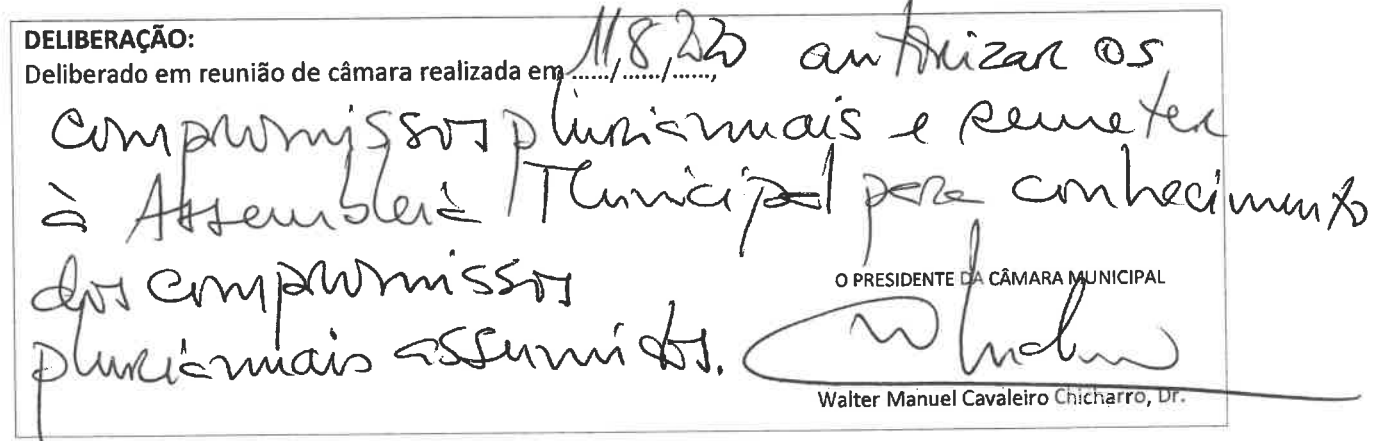 DELIBERAÇÃO:
Deliberado em reunião de câmara realizada em 11/8/220, autorizar os
compromissos plurianuais e remeter
à Assembleia Municipal para conhecimento
dos compromissos
O PRESIDENTE DA CÂMARA MUNICIPAL
plurianuais assumidos.
Walter Manuel Cavaleiro Chicharro, Dr.